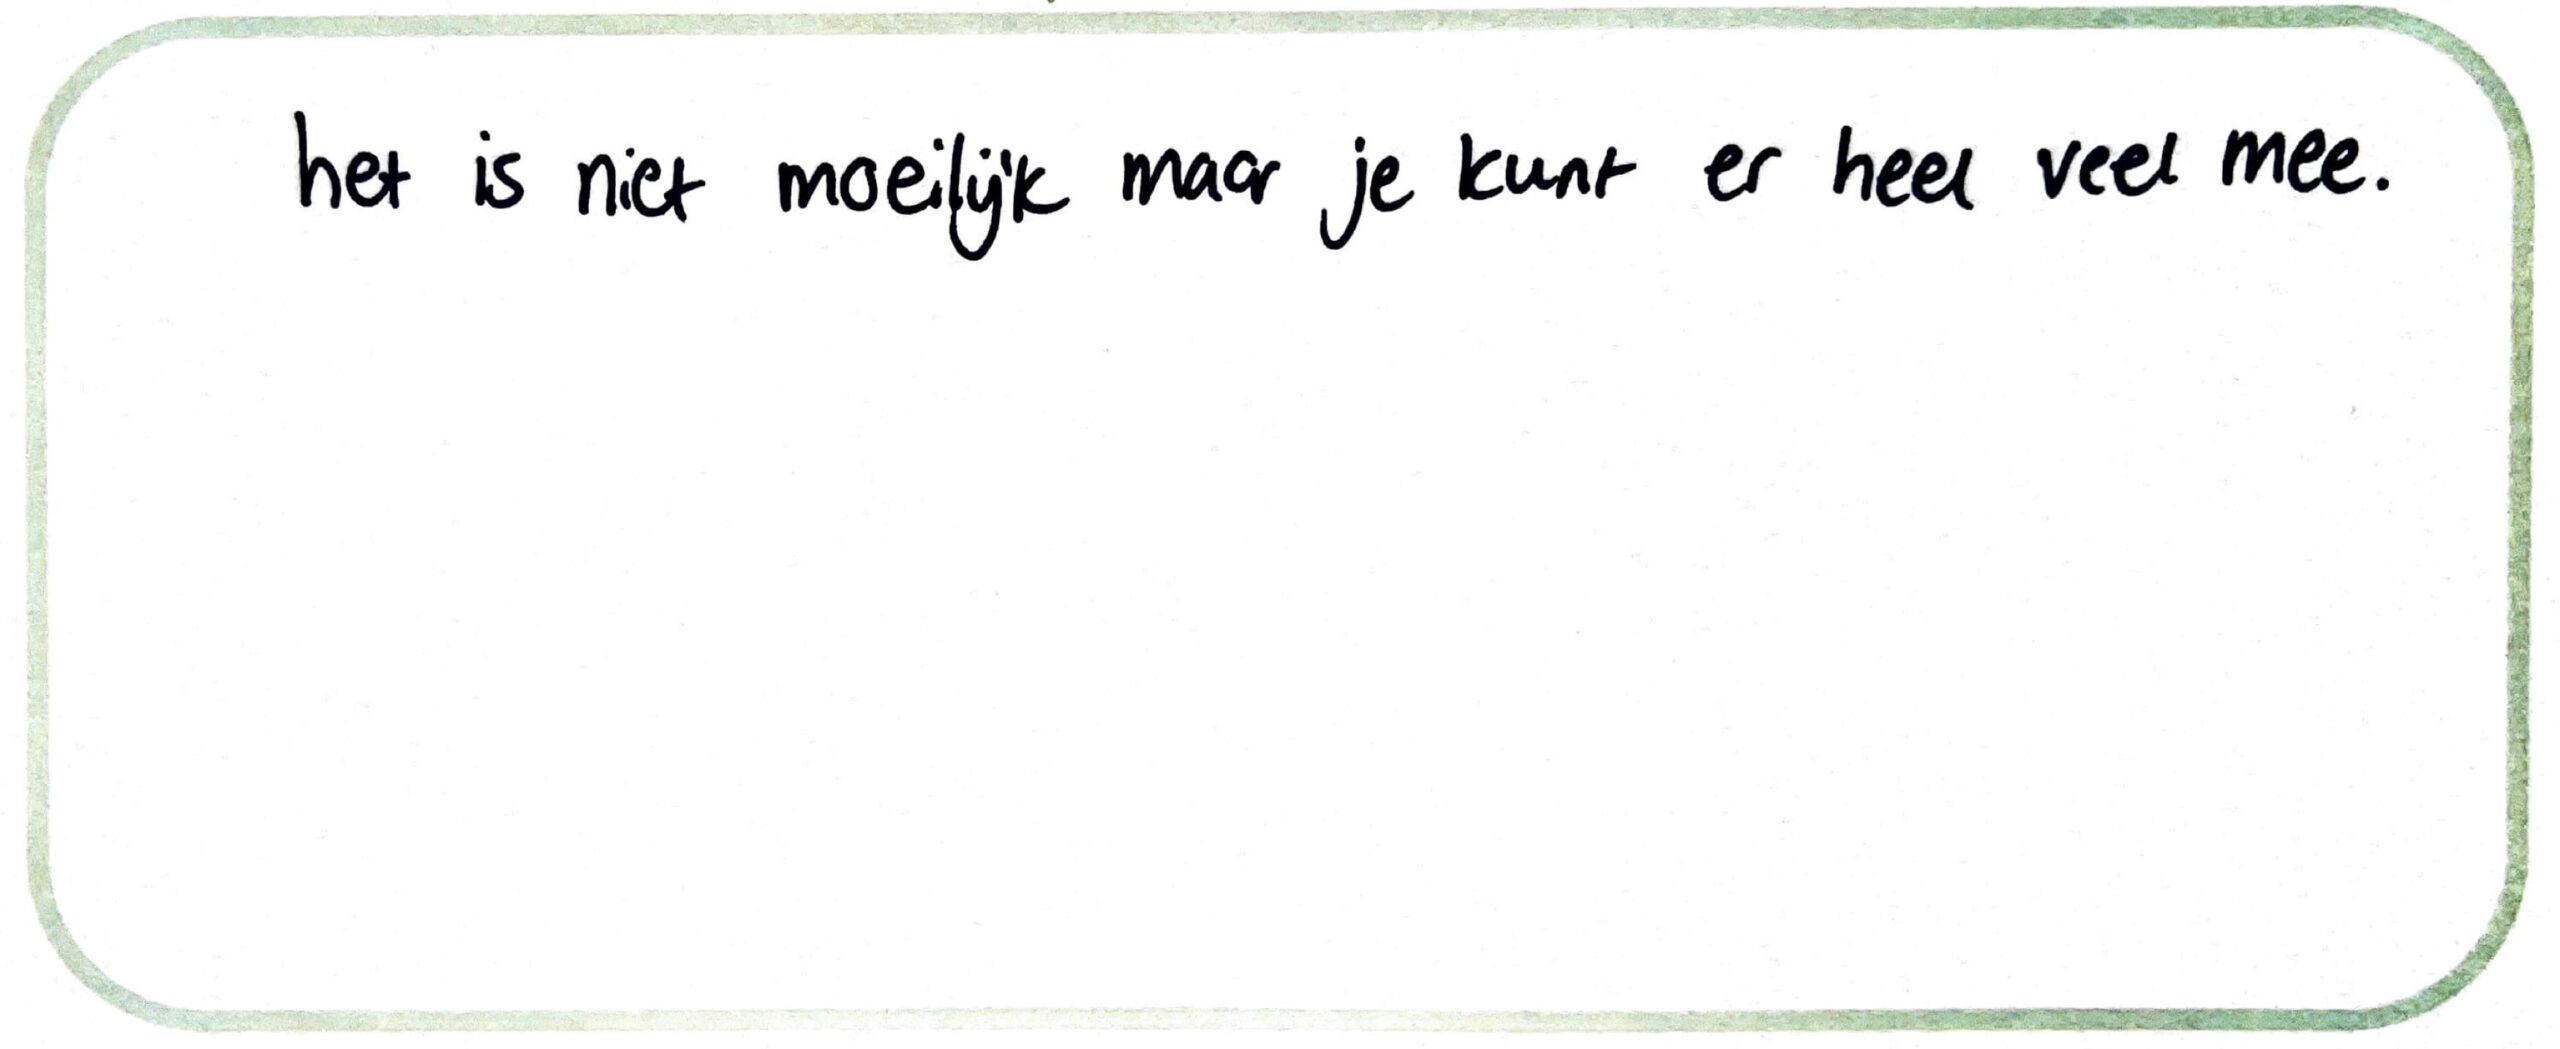 het is niet moeilijk maar je kunt er heel veel mee.